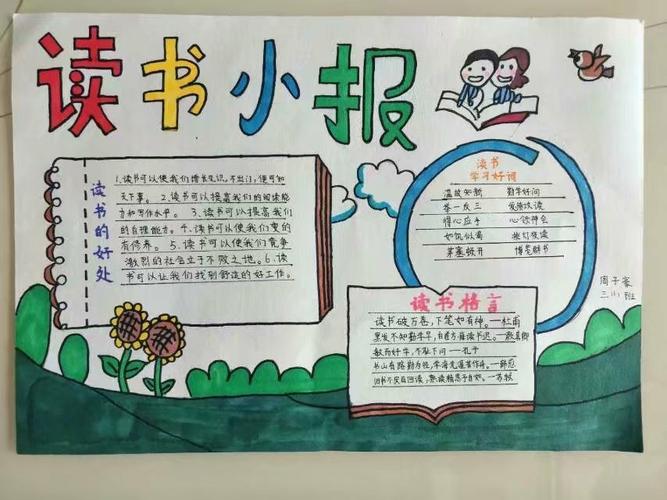 读书小报
读书的好处
1.读书可以使我们增长见识,不出门,便可知
天下事。2.读书可以提高我们的阅读能
力和写作水平。3.读书可以提高我们
的自理能力。4.读书可以使我们变的
有修养。5.读书可以使我们竞争
激烈的社会立于不败之地。6.读
书可以让我们找到舒适的好工作。
读书
学习好词
温故知新 勤学好问
举一反三 发愤攻读
得心应手 心领神会
如饥似渴 挑灯夜读
茅塞顿开 博览群书
三(1)班
读书格言
读书破万卷,下笔如有神。一杜甫
黑发不知勤学早,白首方悔读书迟。一颜真卿
敏而好学,不耻下问一孔子
书山有路勤为径,学海无涯苦作舟。一韩愈
旧书不厌百回读,熟读精思子自知。一苏轼